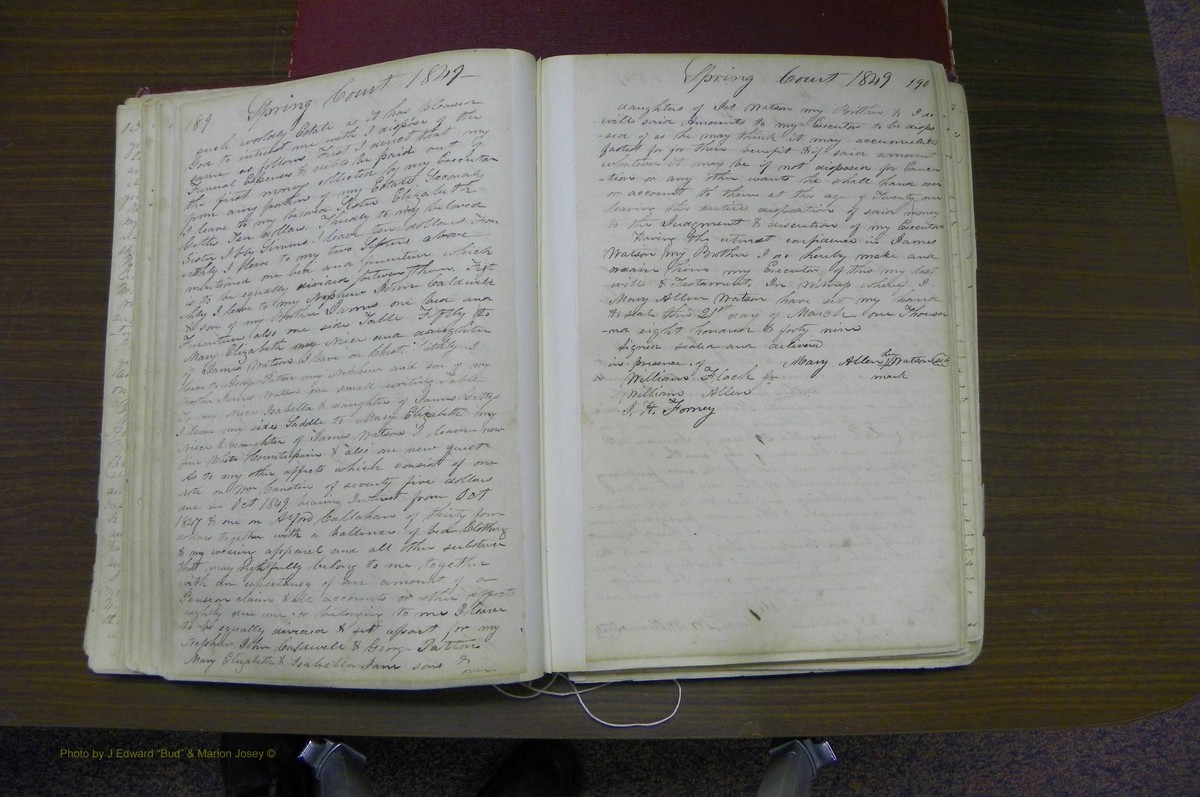 189 Spring Court 1849
such worldly Estate as it has pleased
God to intrust me with I dispose of the
same as follows First I direct that my
Funeral Expenses & debts be paid out of
the first money collected by my Executor
from any portion of my Estate. Secondly
I leave to my beloved Sister Elizabeth
Gettes Ten dollars. Thirdly to my beloved
Sister Ibby Simms I leave ten dollars. Four
-rthly I leave to my two Sisters above
mentioned one bed and furniture which
is to be equally divided between them. Fift
-hly I leave to my Nephew John Caldwell
& son of my Brother James one bed and
Furniture also one side Table Fifthly to
Mary Elizabeth my Niece and daughter
of James Watson I leave one Chest. I
leave to George my nephew and son of my
brother James Watson one small writing Table
To my Niece Isabella & daughter of James Gettys
I leave my side Saddle to Mary Elizabeth my
Niece & daughter of James Watson I leave new
fine White Counterpain & also one new quilt
As to my other affects which consist of one
note on Wm of seventy five dollars
due in Oct 1849 bearing Interest from Oct
1847 & one on Alford Callahan of thirty four
dollars together with a ballance of bed Clothing
& my wearing apparel and all other substance
that may rightfully belong to me together
with an expectancy of an amount of a
Pension claim & all accounts or other affects
rightly due me or belonging to me I leave
to be equally divided & set apart for my
Nephew John Caldwell & George Patton
Mary Elizabeth & Isabella Jane sons &
over
Spring Court 1849 190
daughters of Jas Watson my Brother & I do
will said Amounts to my Executor to be dispo
-sed of as he may think it may accumulate
fastest for for their benefit & if said amount
whatever it may be if not disposed for Educa
-tion or any other wants he shall hand over
or account to them at the age of Twenty one
leaving the entire disposition of said money
to the Judgment & discretion of my Executor
Having the utmost confidence in James
Watson my Brother I do hereby make and
ordain him my Executor of this my last
will & Testament. In Witness whereof I
Mary Allen Watson have set my hand
& seal this 21st day of March one Thousa
-nd eight hundred & forty nine
Signed sealed and delivered
in presence of Mary Allen her Watson Seal
William Flack mark
William Allen
J. H. Forney
Photo by J Edward "Bud" & Marion Josey ©